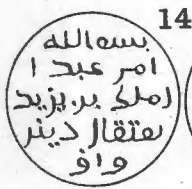 14
بسم الله
امر عبد ا
لملك بن يزيد
مثقال دينر
واف